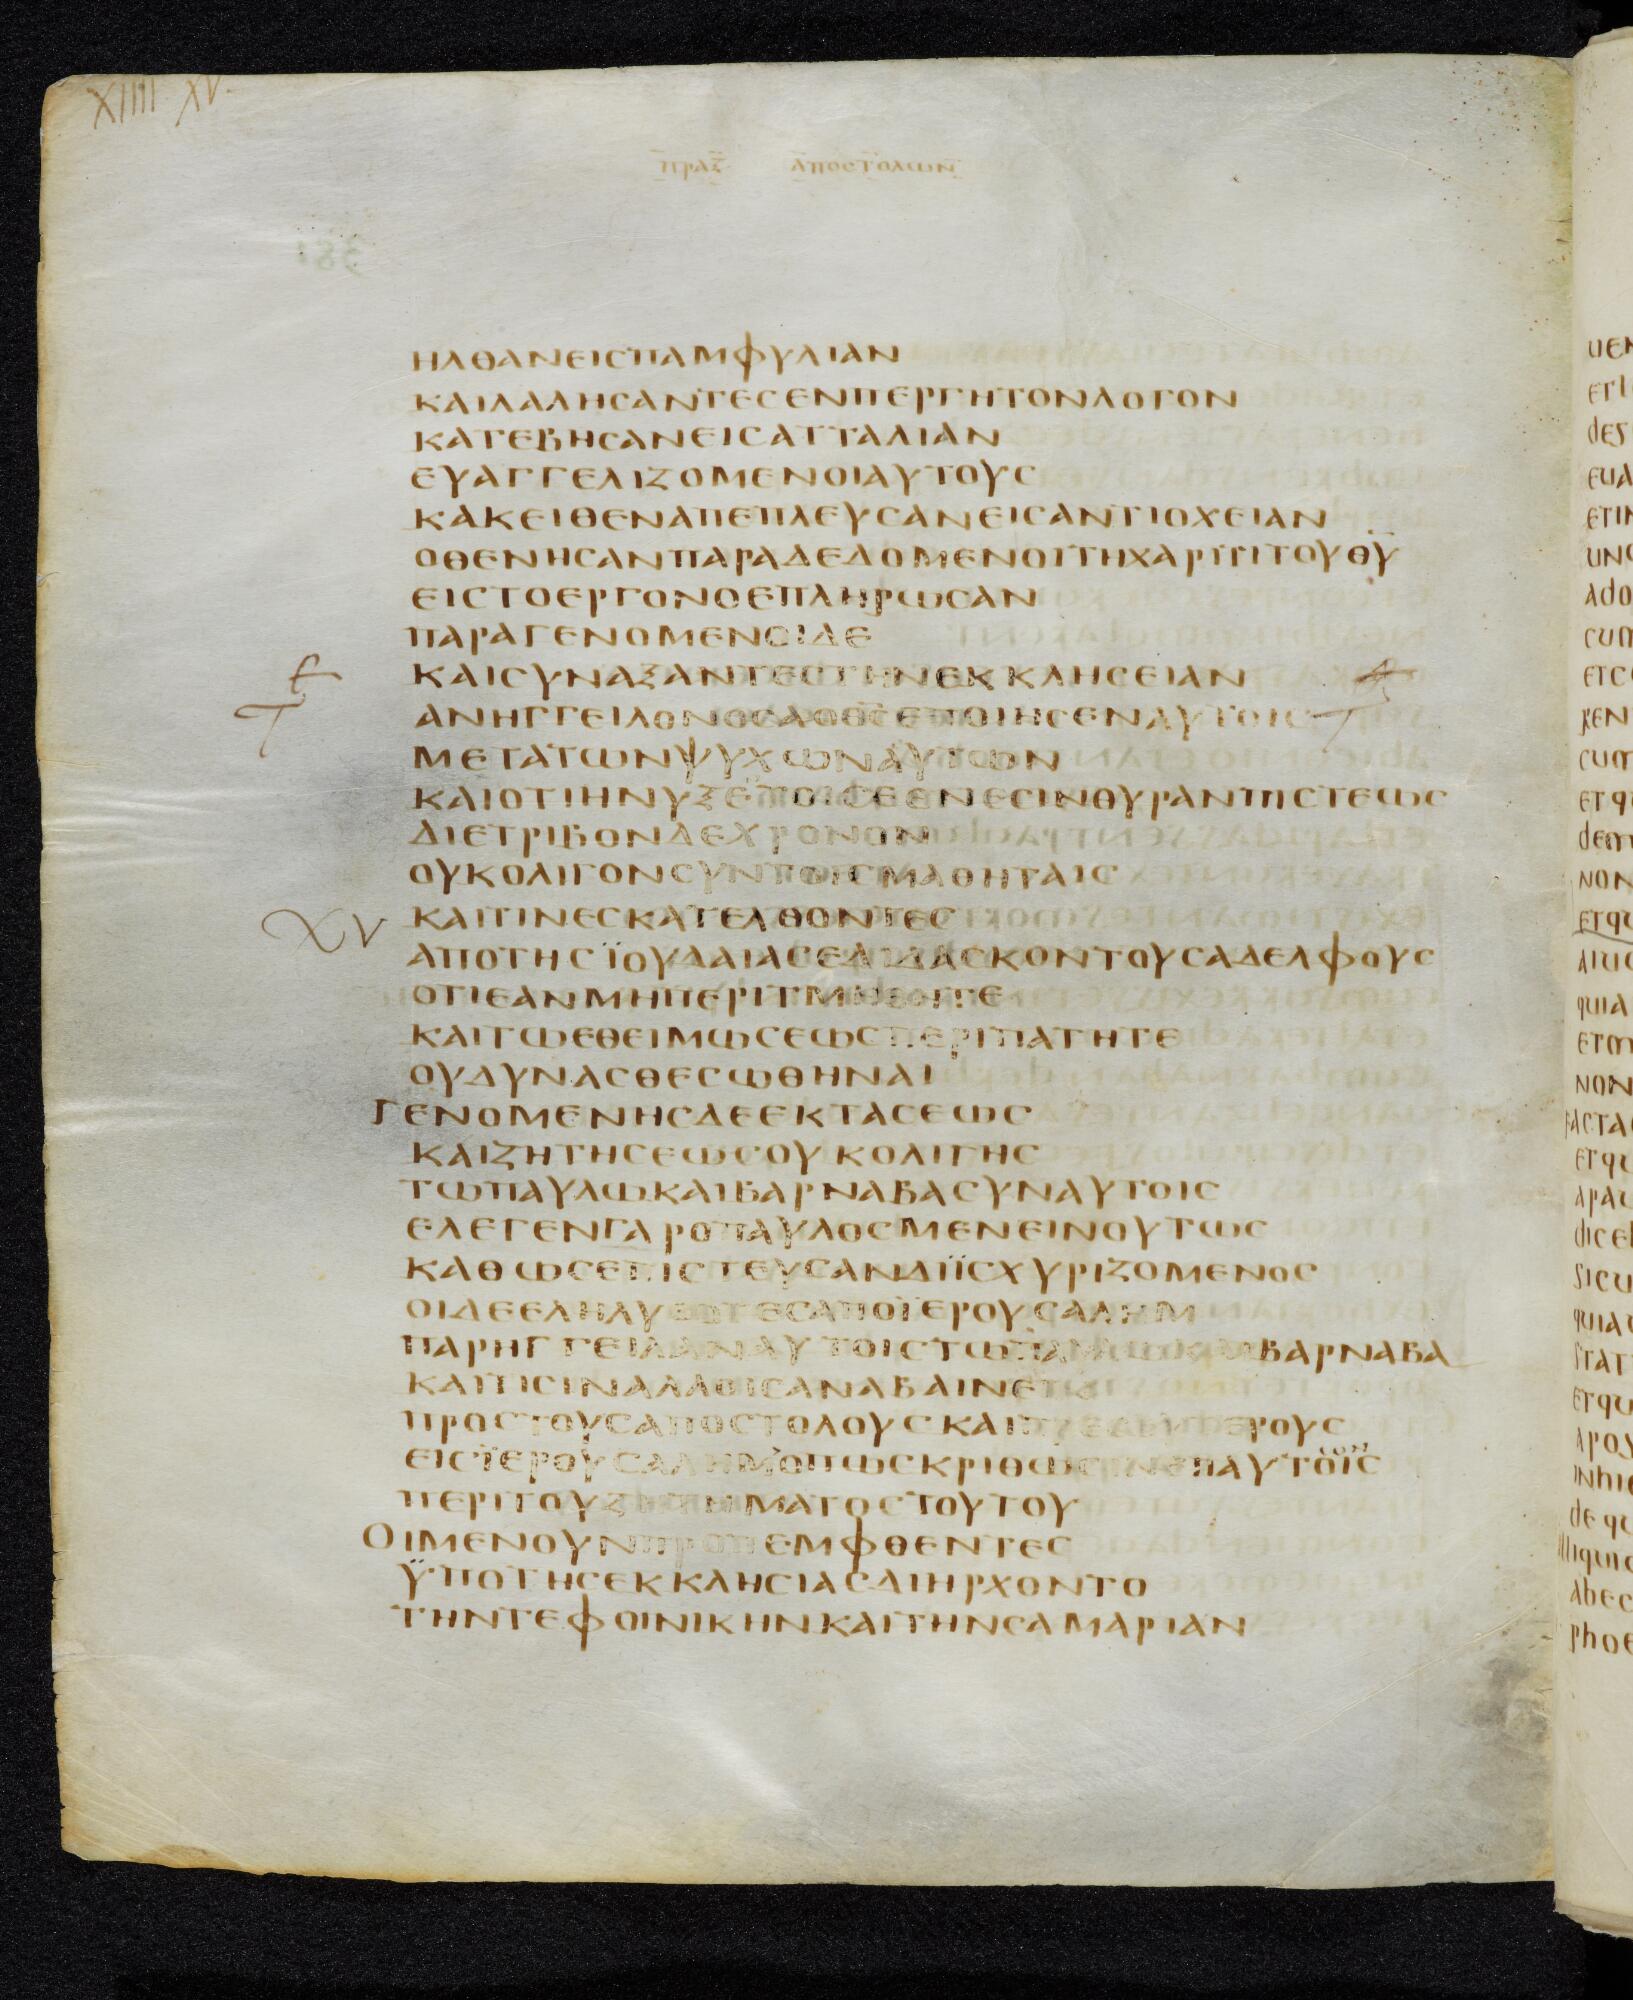 XIIII XV.
ΠΡΑΞ ΑΠΟΣΤΟΛΩΝ
381
ΗΛΘΑΝΕΙϹΠΑΜΦΥΛΙΑΝ
ΚΑΙΛΑΛΗϹΑΝΤΕϹΕΝΠΕΡΓΗΤΟΝΛΟΓΟΝ
ΚΑΤΕΒΗϹΑΝΕΙϹΑΤΤΑΛΙΑΝ
ΕΥΑΓΓΕΛΙΖΟΜΕΝΟΙΑΥΤΟΥϹ
ΚΑΚΕΙΘΕΝΑΠΕΠΛΕΥϹΑΝΕΙϹΑΝΤΙΟΧΕΙΑΝ
ΟΘΕΝΗϹΑΝΠΑΡΑΔΕΔΟΜΕΝΟΙΤΗΧΑΡΙΤΙΤΟΥΘΥ
ΕΙϹΤΟΕΡΓΟΝΟΕΠΛΗΡΩϹΑΝ
ΠΑΡΑΓΕΝΟΜΕΝΟΙΔΕ
ΚΑΙϹΥΝΑΞΑΝΤΕϹΤΗΝΕΚΚΛΗϹΕΙΑΝ
ΑΝΗΓΓΕΙΛΟΝΟϹΑΟΘϹΕΠΟΙΗϹΕΝΑΥΤΟΙϹ
ΜΕΤΑΤΩΝΨΥΧΩΝΑΥΤΩΝ
ΚΑΙΟΤΙΗΝΥΞΕΤΟΙϹΕΘΝΕϹΙΝΘΥΡΑΝΠΙϹΤΕΩϹ
ΔΙΕΤΡΙΒΟΝΔΕΧΡΟΝΟΝ
ΟΥΚΟΛΙΓΟΝϹΥΝΤΟΙϹΜΑΘΗΤΑΙϹ
XV ΚΑΙΤΙΝΕϹΚΑΤΕΛΘΟΝΤΕϹ
ΑΠΟΤΗϹΪΟΥΔΑΙΑϹΕΔΙΔΑϹΚΟΝΤΟΥϹΑΔΕΛΦΟΥϹ
ΟΤΙΕΑΝΜΗΠΕΡΙΤΜΗΘΗΤΕ
ΚΑΙΤΩΕΘΕΙΜΩϹΕΩϹΠΕΡΙΠΑΤΗΤΕ
ΟΥΔΥΝΑϹΘΕϹΩΘΗΝΑΙ
ΓΕΝΟΜΕΝΗϹΔΕΕΚΤΑϹΕΩϹ
ΚΑΙΖΗΤΗϹΕΩϹΟΥΚΟΛΙΓΗϹ
ΤΩΠΑΥΛΩΚΑΙΒΑΡΝΑΒΑϹΥΝΑΥΤΟΙϹ
ΕΛΕΓΕΝΓΑΡΟΠΑΥΛΟϹΜΕΝΕΙΝΟΥΤΩϹ
ΚΑΘΩϹΕΠΙϹΤΕΥϹΑΝΔΙΪϹΧΥΡΙΖΟΜΕΝΟϹ
ΟΙΔΕΕΛΗΛΥΘΟΤΕϹΑΠΟΪΕΡΟΥϹΑΛΗΜ
ΠΑΡΗΓΓΕΙΛΑΝΑΥΤΟΙϹΤΩΠΑΥΛΩΚΑΙΒΑΡΝΑΒΑ
ΚΑΙΤΙϹΙΝΑΛΛΟΙϹΑΝΑΒΑΙΝΕΙΝ
ΠΡΟϹΤΟΥϹΑΠΟϹΤΟΛΟΥϹΚΑΙΠΡΕϹΒΥΤΕΡΟΥϹ
ΕΙϹΪΕΡΟΥϹΑΛΗΜΟΠΩϹΚΡΙΘΩϹΙΝΕΠΑΥΤΟΙϹ
ΠΕΡΙΤΟΥΖΗΤΗΜΑΤΟϹΤΟΥΤΟΥ
ΟΙΜΕΝΟΥΝΠΡΟΠΕΜΦΘΕΝΤΕϹ
ΫΠΟΤΗϹΕΚΚΛΗϹΙΑϹΔΙΗΡΧΟΝΤΟ
ΤΗΝΤΕΦΟΙΝΙΚΗΝΚΑΙΤΗΝϹΑΜΑΡΙΑΝ